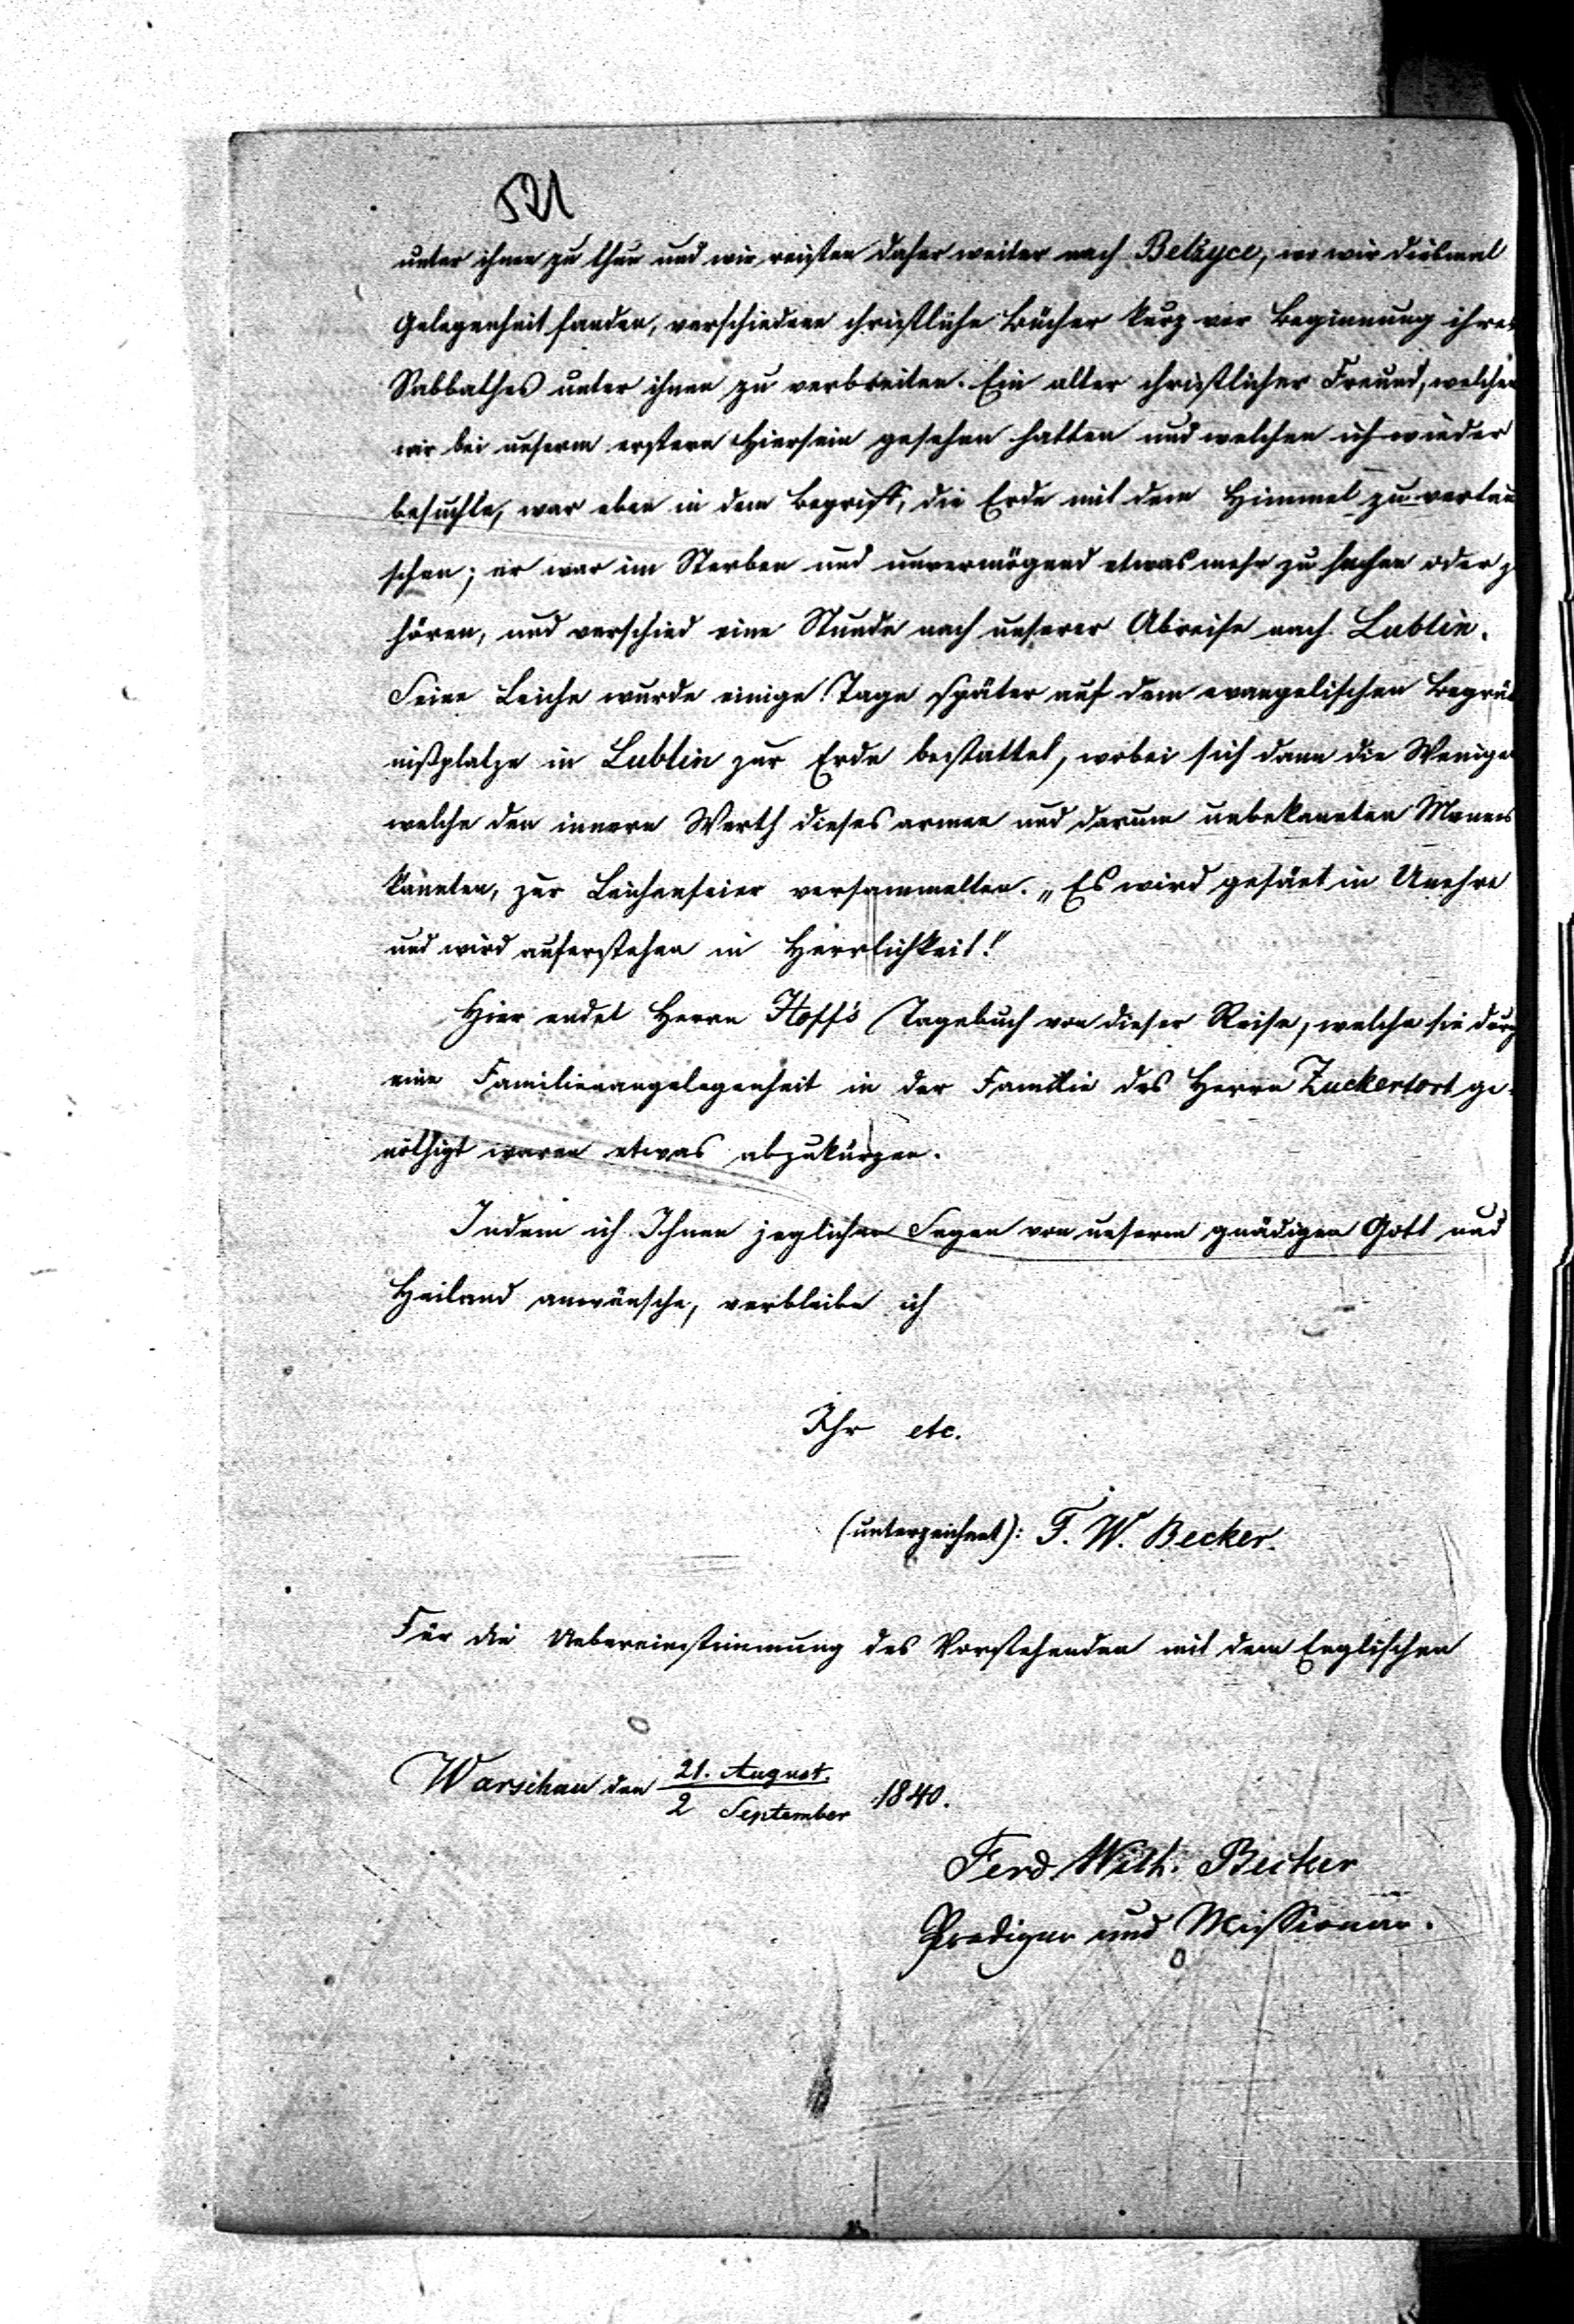 521
unter ihnen zu thun und wir reisten daher weiter nach Belzyce, wo wir diesmal
Gelegenheit fanden, verschiedene christliche Bücher kurz vor Beginnung ihres
Sabbathes unter ihnen zu verbreiten. Ein alter christlicher Freund, welchen
wir bei unserm erstern Hiersein gesehen hatten und welchen ich wieder
besuchte, war eben in dem Begriff, die Erde mit dem Himmel zu vertau
schen; er war im Sterben und unvermögend etwas mehr zu sehen oder z
hören, und verschied eine Stunde nach unserer Abreise nach Lublin.
Seine Leiche wurde einige Tage später auf dem evangelischen Begräb
nißplatze in Lublin zur Erde bestattet, wobei sich dann die Wenigen
welche den innern Werth dieses armen und darum unbekannten Mannes
kannten, zur Leichenfeier versammelten. „Es wird gesäet in Unehre
und wird auferstehen in Herrlichkeit!"
Hier endet Herrn Hoff's Tagebuch von dieser Reise, welche sie durch
eine Familienangelegenheit in der Familie des Herrn Zuckertort ge-
nöthigt waren etwas abzukürzen.
Indem ich Ihnen jeglichen Segen von unserm gnädigen Gott und
Heiland anwünsche, verbleibe ich
Ihr etc.
(unterzeichnet): F. W. Becker.
Für die Uebereinstimmung des Vorstehenden mit dem Englischen
Warschau den 21. August. / 2 September 1840.
Ferd. Wilh. Becker
Prediger und Missionar.